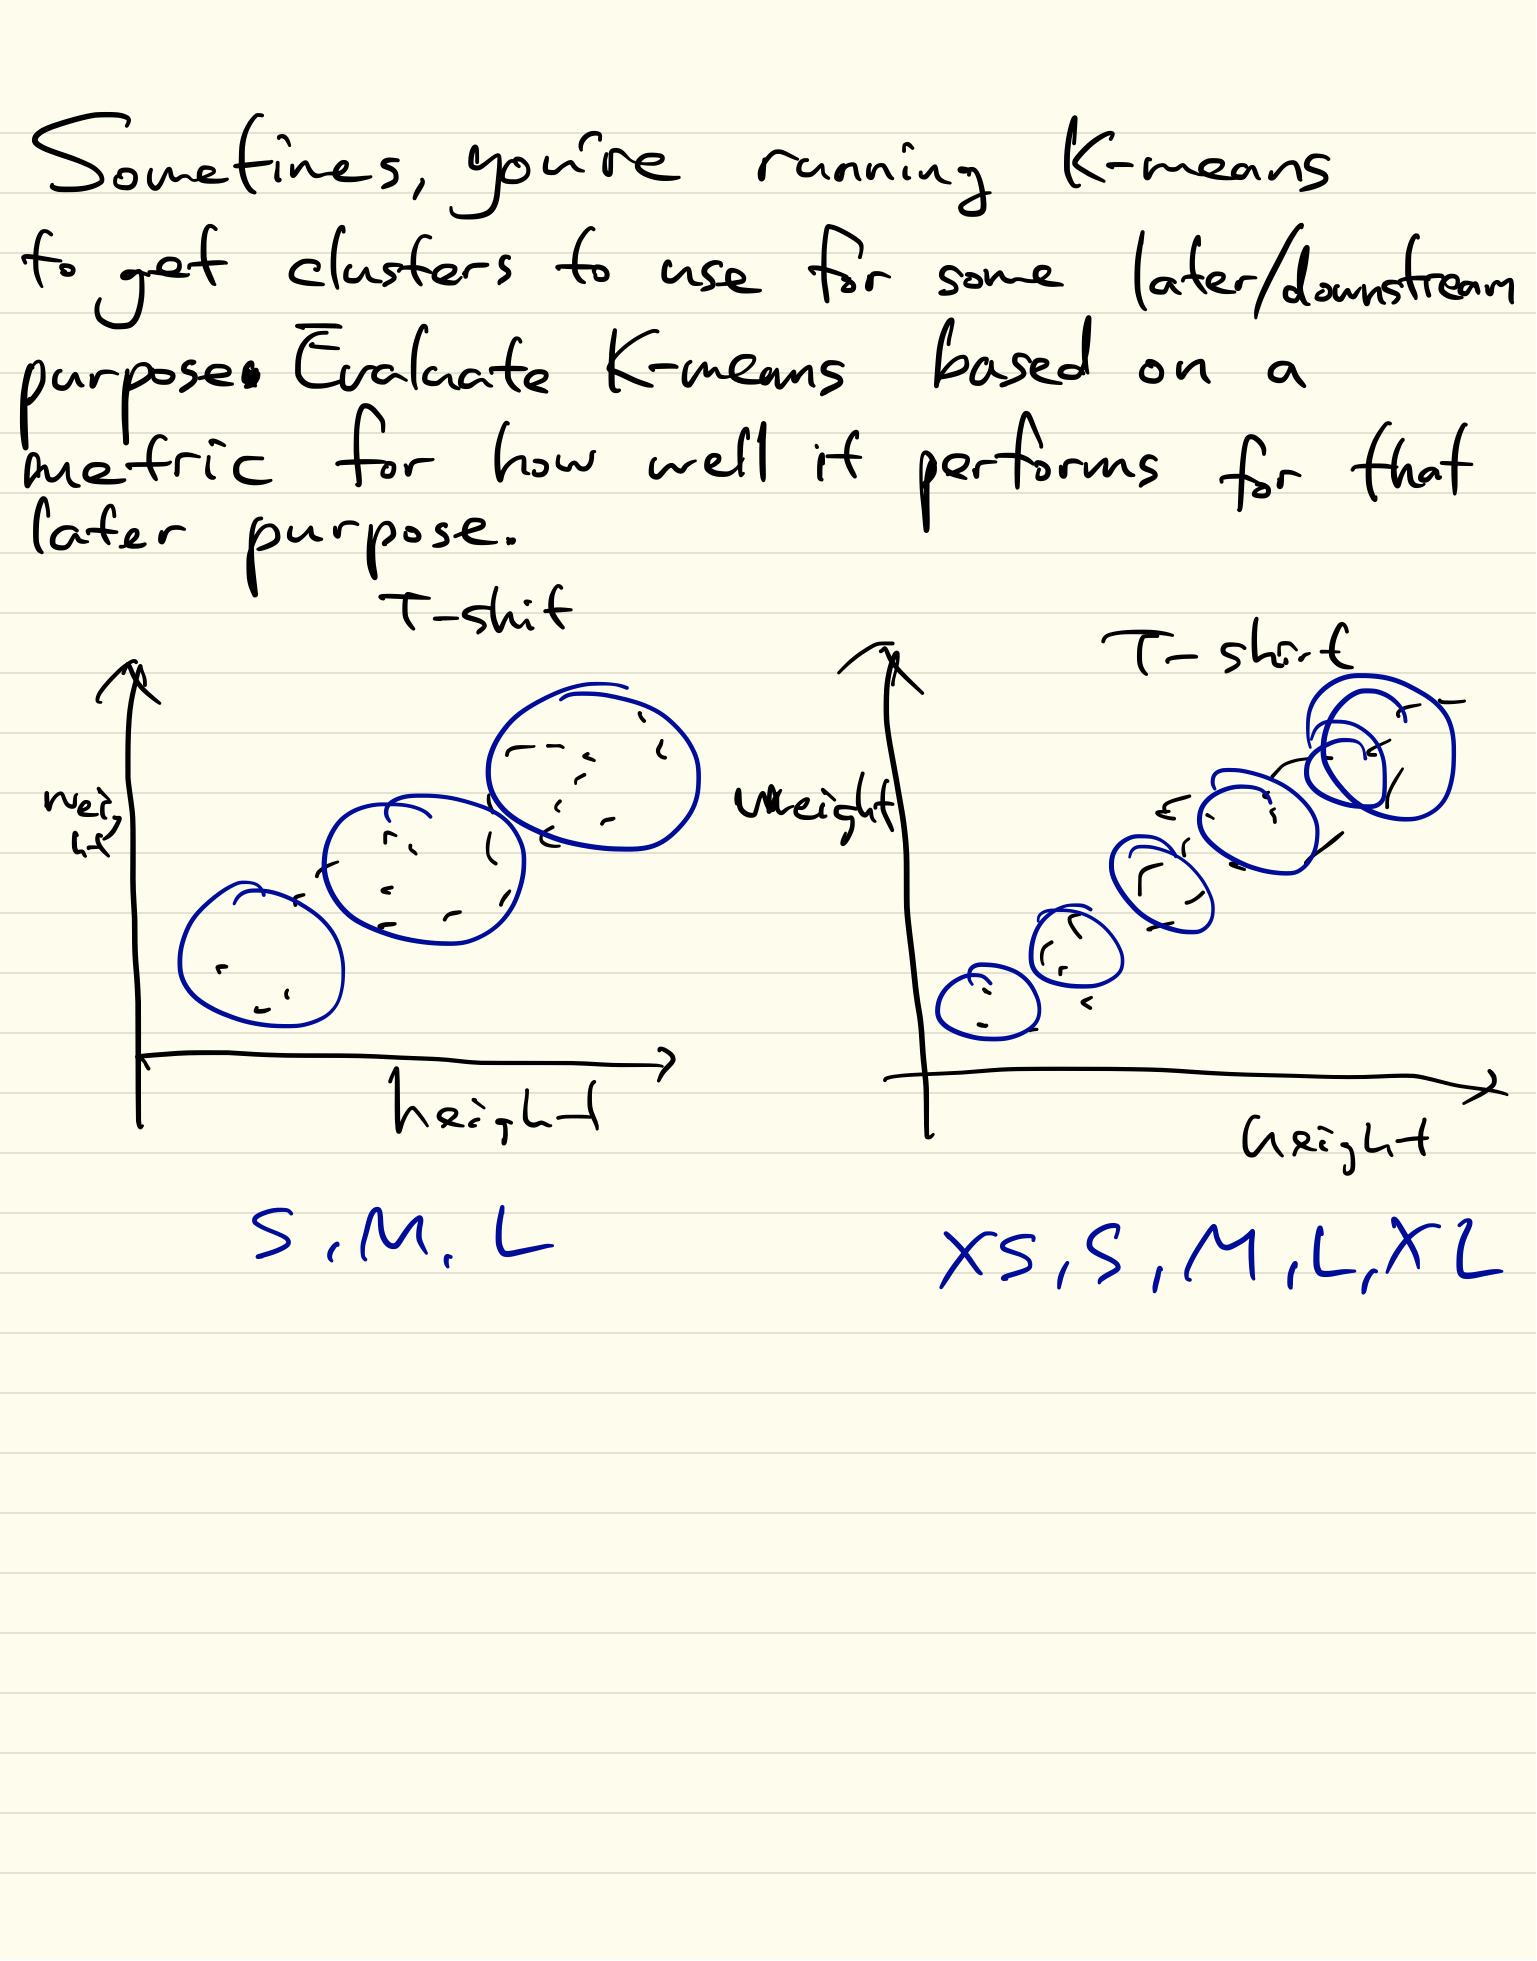 Sometimes, you're running K-means
to get clusters to use for some later/downstream
purpose. Evaluate K-means based on a
metric for how well it performs for that
later purpose.
T-shit
T-shirt
weight
weight
height
height
S, M, L
XS, S, M, L, XL